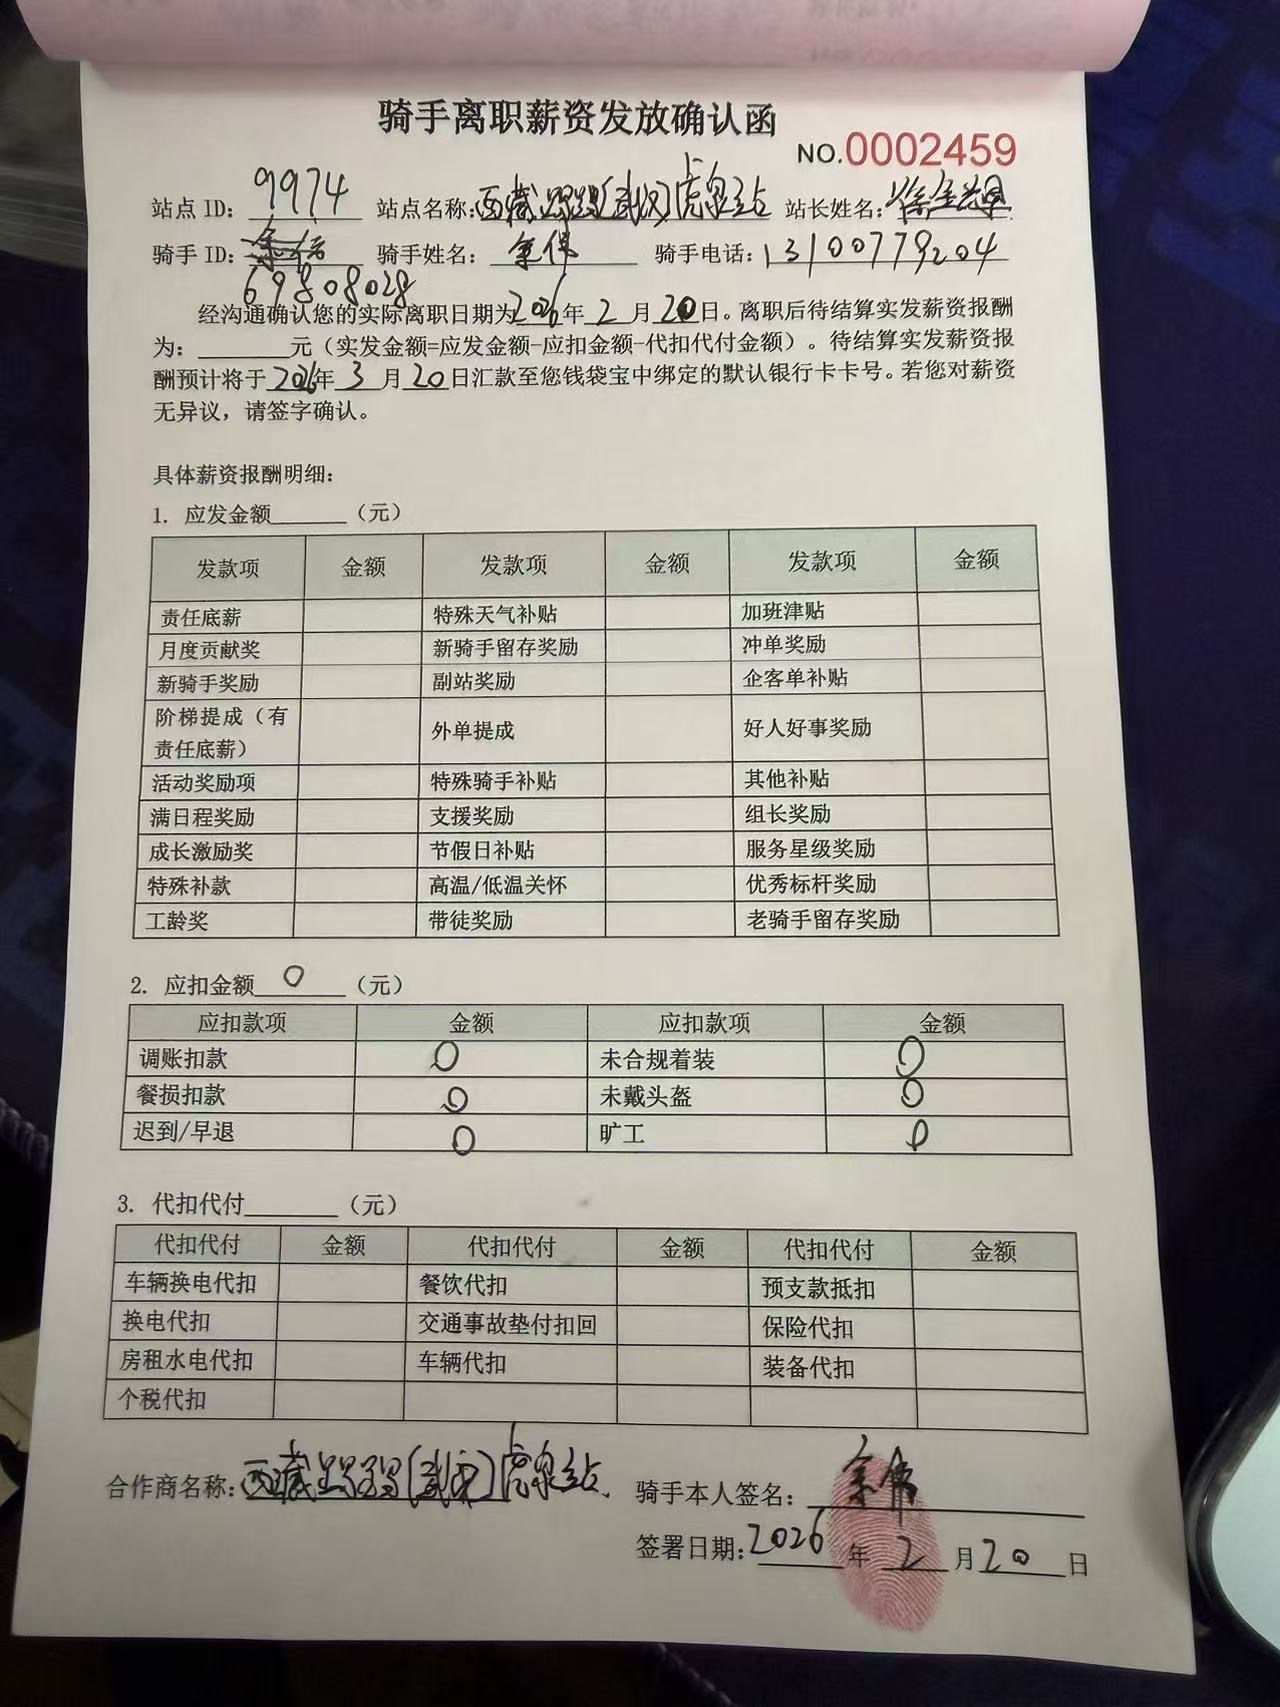 骑手离职薪资发放确认函
NO.0002459
站点 ID: 9974 站点名称: 西藏 (武汉)虎泉站 站长姓名: 徐
骑手 ID: 骑手姓名: 余伟 骑手电话: 13100779204
69808028
经沟通确认您的实际离职日期为2026年2月20日。离职后待结算实发薪资报酬
为：元（实发金额=应发金额-应扣金额-代扣代付金额）。待结算实发薪资报
酬预计将于2026年3月20日汇款至您钱袋宝中绑定的默认银行卡卡号。若您对薪资
无异议，请签字确认。
具体薪资报酬明细：
1. 应发金额______（元）
发款项 金额 发款项 金额 发款项 金额
责任底薪 特殊天气补贴 加班津贴
月度贡献奖 新骑手留存奖励 冲单奖励
新骑手奖励 副站奖励 企客单补贴
阶梯提成（有
责任底薪） 外单提成 好人好事奖励
活动奖励项 特殊骑手补贴 其他补贴
满日程奖励 支援奖励 组长奖励
成长激励奖 节假日补贴 服务星级奖励
特殊补款 高温/低温关怀 优秀标杆奖励
工龄奖 带徒奖励 老骑手留存奖励
2. 应扣金额 0 （元）
应扣款项 金额 应扣款项 金额
调账扣款 0 未合规着装 0
餐损扣款 0 未戴头盔 0
迟到/早退 0 旷工 0
3. 代扣代付______（元）
代扣代付 金额 代扣代付 金额 代扣代付 金额
车辆换电代扣 餐饮代扣 预支款抵扣
换电代扣 交通事故垫付扣回 保险代扣
房租水电代扣 车辆代扣 装备代扣
个税代扣
合作商名称: 西藏 (武汉)虎泉站 骑手本人签名: 余伟
签署日期: 2026年2月20日